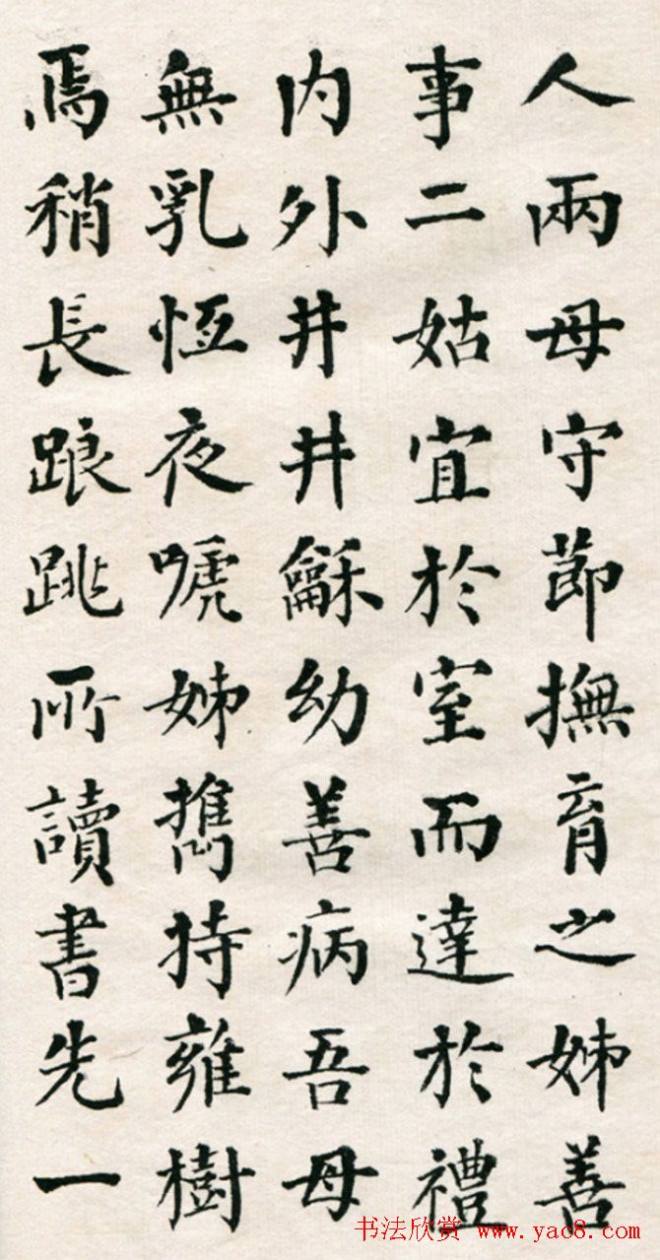 人兩母守節撫育之姊善
事二姑宜於室而達於禮
内外井井龢幼善病吾母
無乳恆夜嗁姊擕持雍樹
焉稍長踉跳所讀書先一
书法欣赏 www.yac8.com